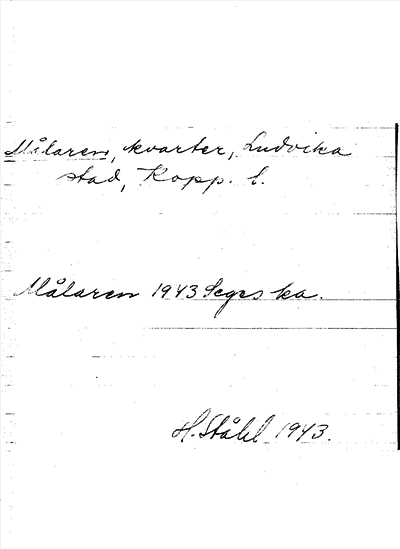 Målaren, kvarter, Ludvika
stad, Kopp. l.
Målaren 1943 Segerska.
H. Ståhl 1943.